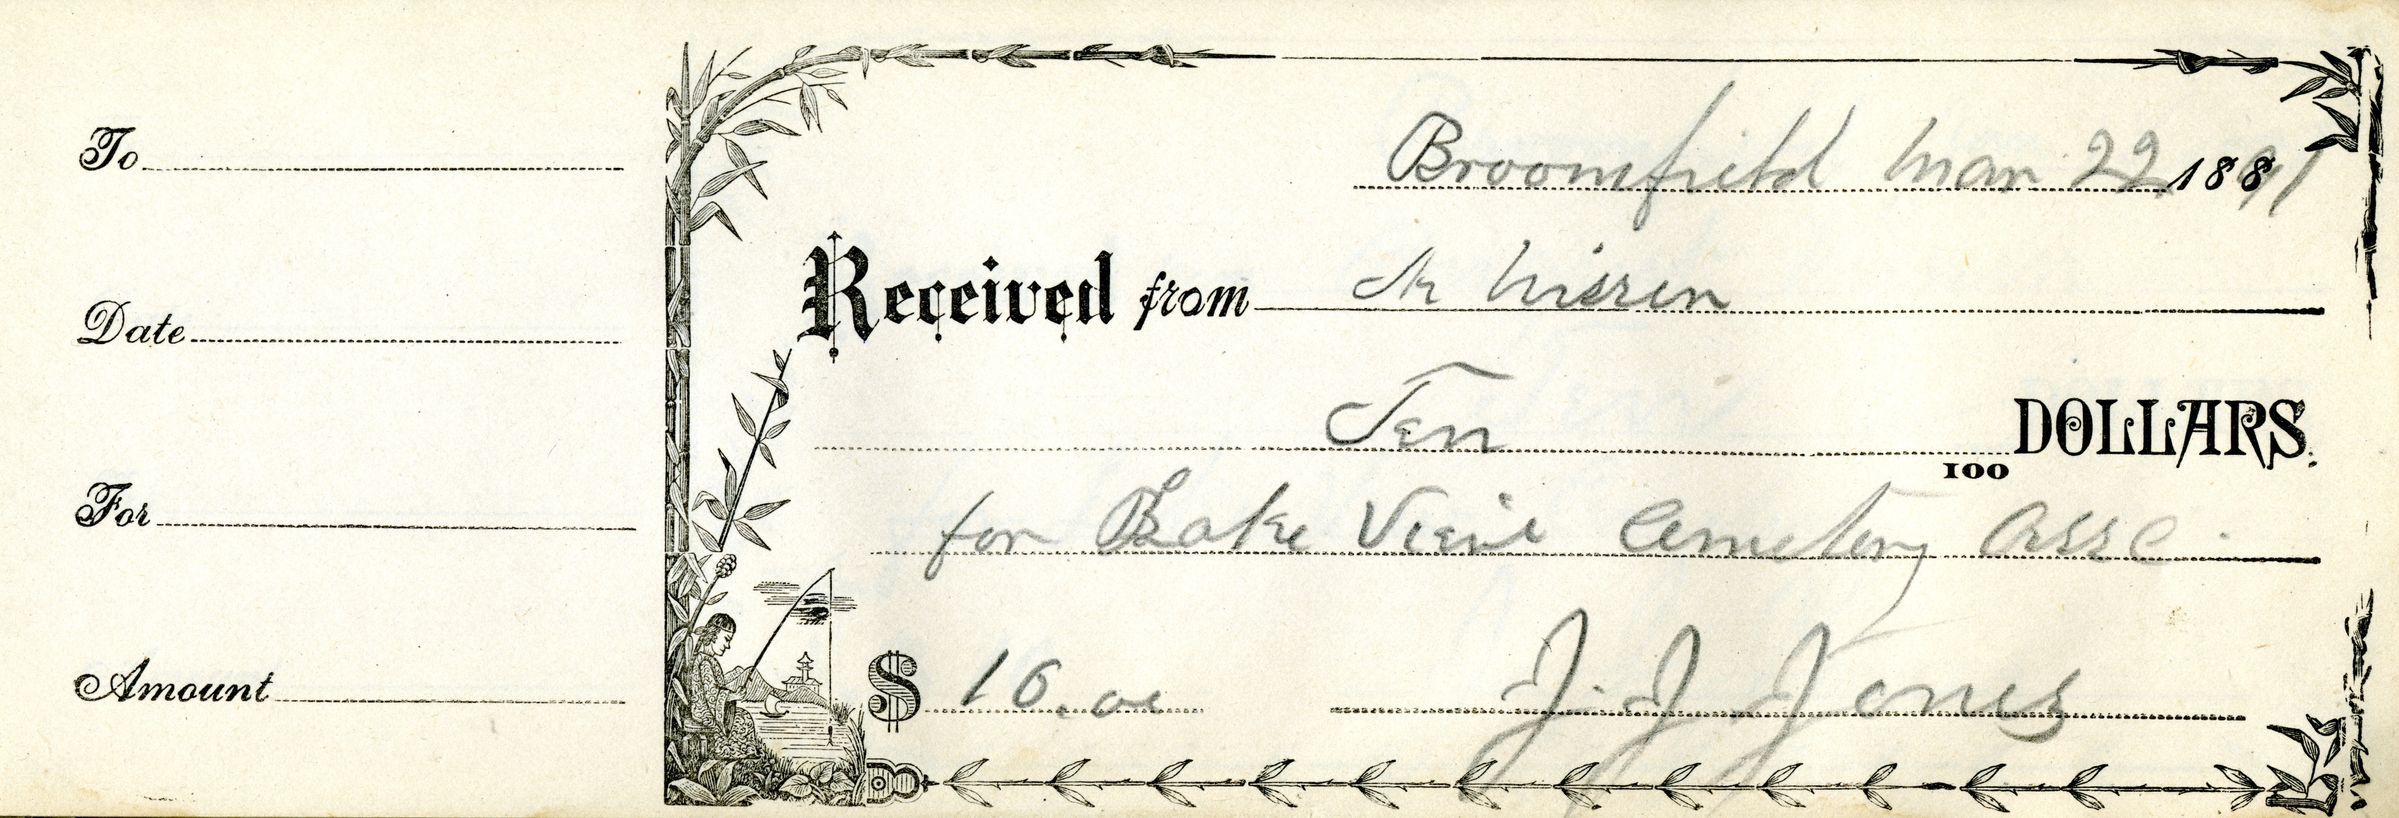 To
Date
For
Amount
Broomfield Mar 22 1891
Received from
Ten 100 DOLLARS.
for Lake View Cemetery Assc.
$ 10.00 J. J. Jones